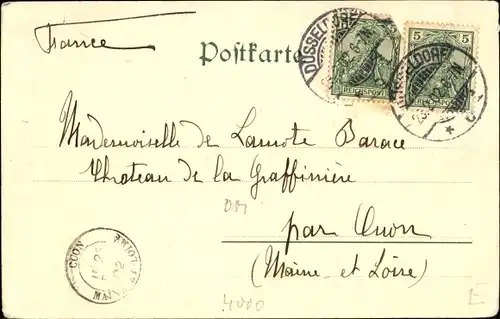 France
Postkarte
DÜSSELDORF
REICHSPOST
5
5
Mademoiselle de Lamote Barace
Chateau de la Graffinière
par Cuon
(Maine et Loire)
CUON
4000